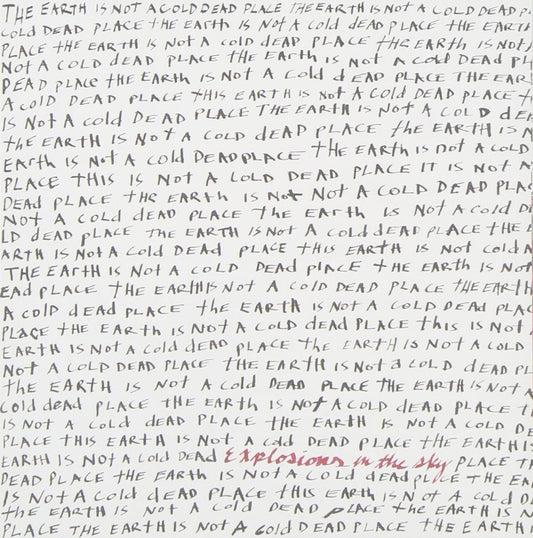 THE EARTH IS NOT A COLD DEAD PLACE THE EARTH IS NOT A COLD DEAD P
COLD DEAD PLACE THE EARTH IS NOT A COLD DEAD PLACE THE EARTH
PLACE THE EARTH IS NOT A COLD DEAD PLACE tHE EARtH IS NOT
NOT A COLD DEAD PLACE THE EARTH IS NOT A COLD DEAd PL
DEAD PLACE tHE EARtH IS NOT A COLD dEAD PLACE THE EAR
A COLD DEAD PLACE tHIS EARTH IS NOt A COLD DEAD PLACE tH
IS NOt A COLD DEAD PLACE THE EARTH IS NOT A COLD DEA
tHE EARTH IS NOT A COLD dEAD PLACE tHE EARTH IS N
EARtH IS NOt A COld DEAD PLACE THE EARtH IS NOT A COLD
PLACE THIS IS NOT A COLD DEAD PLACE IT IS NOT A
DEAd PLACE tHE EARtH IS NOt NOt A COLD DEAD PLAC
NOT A COLD dEAD PLACE tHE EARTH IS NOT A COld D
LD dEAD PLACE THE EARTH IS NOT A COLd dEAD PLACE tHE E
ARTH IS NOt A COld DEAd PLACE tHIS EARtH IS NOt COLd A
THE EARTH IS NOt A COLD DEAD PLACE tHE EARtH IS NOt
EAD PLACE THE EARtH IS NOT A COLD DEAD PLACE THE EARtH
A COLD dEAD PLACE tHE EARTH IS NOT A COLD DEAD PLAC
PLACE tHE EARtH IS NOt A COLD dEAd PLACE tHIS IS NOt
EARTH IS NOt A COld dEAD PLACE tHE EARTH IS NOT A COLD
NOt A COLD DEAD PLACE tHE EARTH IS NOT A COLD dEAD PL
tHE EARTH IS NOT A COld DEAD PLACE tHE EARTH IS NOT
COld dEAd PLACE tHE EARTH IS NOT A COLD DEAD PLACE T
IS NOt A COLD DEAD PLACE tHE EARTH IS NOT A COLD DE
PLACE tHIS EARTH IS NOT A COld DEAD PLACE tHE EARtH IS
EARtH IS NOt A COLD DEAD Explosions in the sky PLACE T
DEAD PLACE tHE EARtH IS NOt A COLD dEAd PLACE THE EA
IS NOT A COld dEAd PLACE tHIS EARtH IS NOt A COLD D
tHE EARtH IS NOT A COLD DEAD PLACE tHE EARTH IS NOT
PLACE THE EARTH IS NOt A COld DEAD PLACE tHE EARTH I